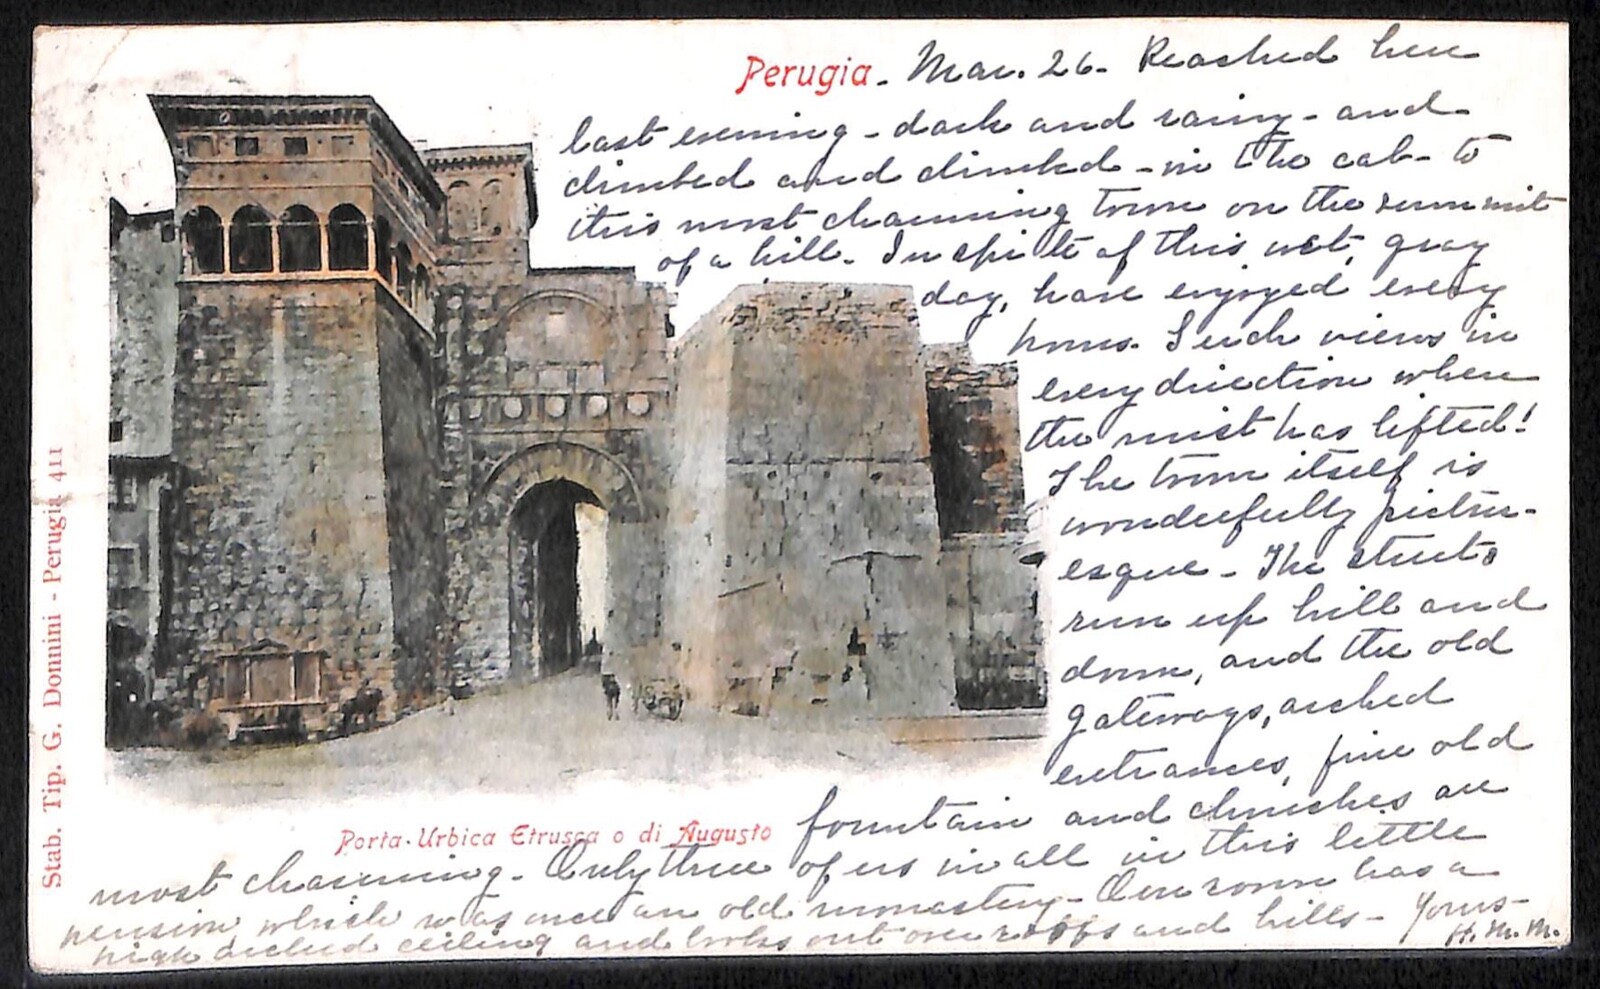 Perugia - Mar. 26 - Reached here
last evening - dark and rainy - and
climbed and climbed - in the cab - to
this most charming town on the summit
of a hill. In spite of this wet, gray
day, have enjoyed every
hour. Such views in
every direction when
the mist has lifted!
The town itself is
wonderfully pictur-
esque - The streets
run up hill and
down, and the old
gateways, arched
entrances, fine old
fountain and churches are
Porta Urbica Etrusca o di Augusto
most charming. Only three of us in all in this little
pension which was once an old monastery - Our room has a
high arched ceiling and looks out over roofs and hills - Yours -
H. M. M.
Stab. Tip. G. Donnini - Perugia 411